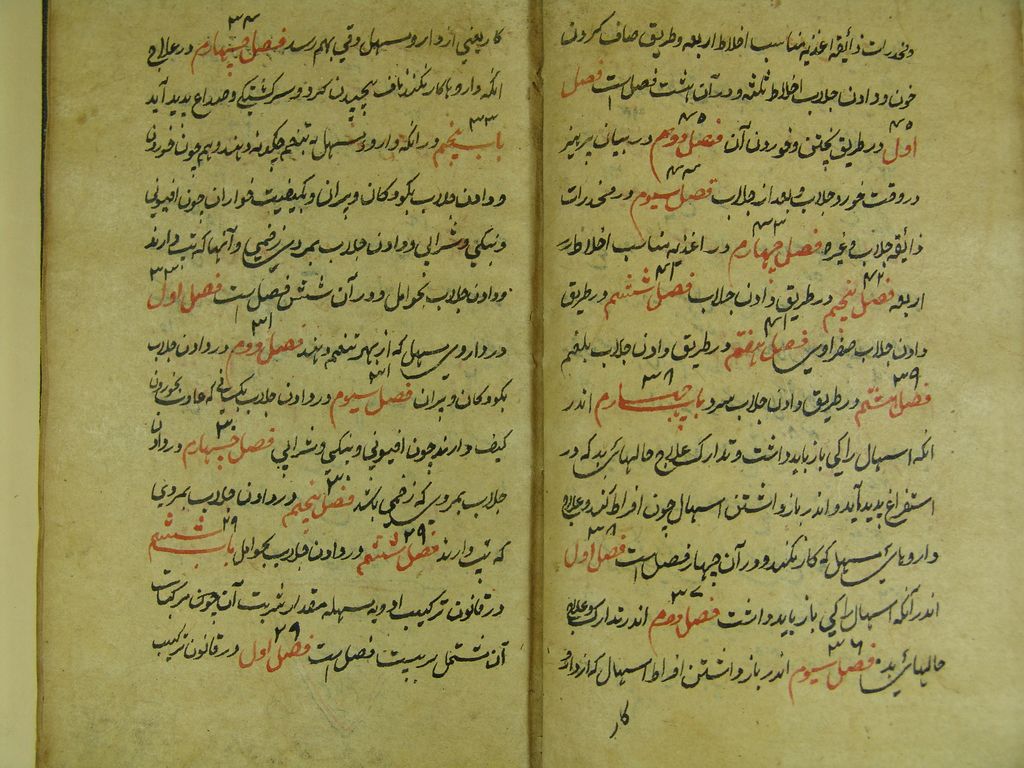 ومخدرات ذائقه اغذیه مناسب اخلاط اربعه وطریق صاف کردن
خون ودادن جلاب اخلاط ثلثه ودر آن هشت فصل است فصل
اول در طریق پختن وخوردن آن فصل دوم در بیان پرهیز
در وقت خوردن جلاب وبعد از جلاب فصل سیوم در مخدرات
ذائقه جلاب وغیره فصل چهارم در اغذیه مناسب اخلاط
اربعه فصل پنجم در طریق دادن جلاب فصل ششم در طریق
دادن جلاب صفراوی فصل هفتم در طریق دادن جلاب بلغم
فصل هشتم در طریق دادن جلاب باب چهارم اندر
انکه اسهال راکی باز باید داشت وتدارک علاج حالهای بد که در
استفراغ پدید آید واندر باز داشتن اسهال چون افراط کند وعلاج
داروهای مسهل که کار نکند ودر آن چهار فصل است فصل اول
اندر آنکه اسهال راکی باز باید داشت فصل دوم اندر تدارک وعلاج
حالهای بد فصل سیوم اندر باز داشتن افراط اسهال که از دارو
کار
کار یعنی از دارو مسهل وقی بهم رسد فصل چهارم در علاج
انکه دارو کار نکند ناف پیچیدن کیرد وسرکشتکی وصداع پدید آید
باب پنجم در انکه داروء مسهل به تنعم چکونه دهند وهم چون خوردن
ودادن جلاب بکودکان وپیران وبکیفیت خواران چون افیونی
وبنکی وشرابی ودادن جلاب بمردی زخمی وآنها که تب دارند
ودادن جلاب بحوامل ودر آن شش فصل است فصل اول
در داروی مسهل که از بهر تنعم دهند فصل دوم در دادن جلاب
بکودکان وپیران فصل سیوم در دادن جلاب بکسانی که عادت بخوردن
کیف دارند چون افیونی وبنکی وشرابی فصل چهارم در دادن
جلاب بمردی که زخمی باشد فصل پنجم در دادن جلاب بمردی
که تب دارند فصل ششم در دادن جلاب بحوامل باب ششم
در قانون ترکیب ادویه مسهله مقدار شربت آن چون مرکبات
آن مشتمل بر بیست فصل است فصل اول در قانون ترکیب